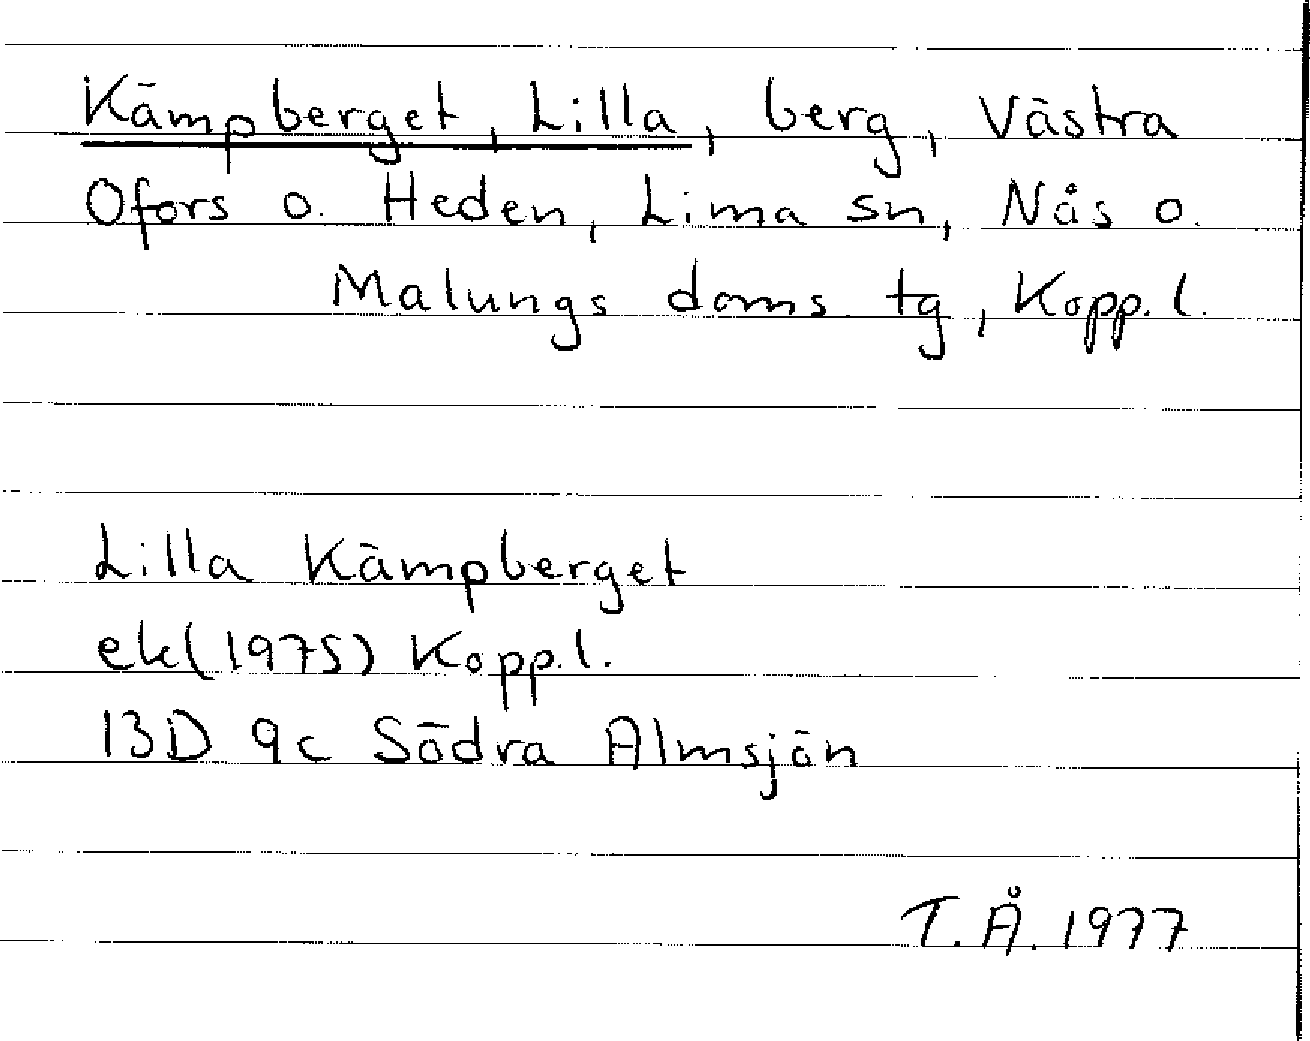 Kämpberget, Lilla, berg, Västra
Ofors o. Heden, Lima sn, Nås o.
Malungs doms tg, Kopp. l.
Lilla Kämpberget
ek(1975) Kopp. l.
13D 9c Södra Almsjön
T. Å. 1977